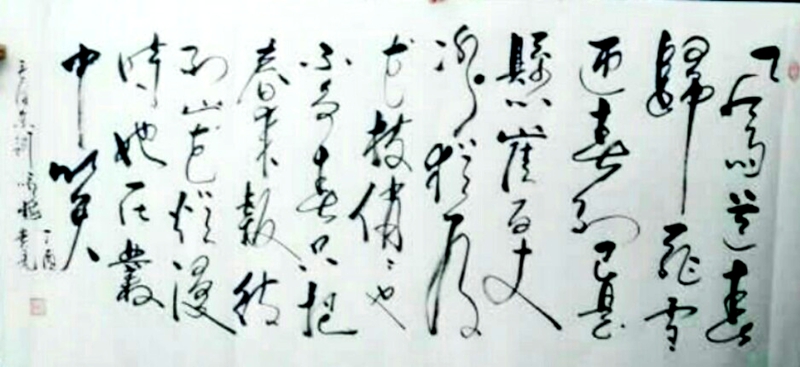 風雨送春
歸飛雪
迎春到已是
懸崖百丈
冰猶有
花枝俏俏也
不争春只把
春来報待
到山花爛漫
時她在叢
中笑
丁酉
毛泽东詞咏梅